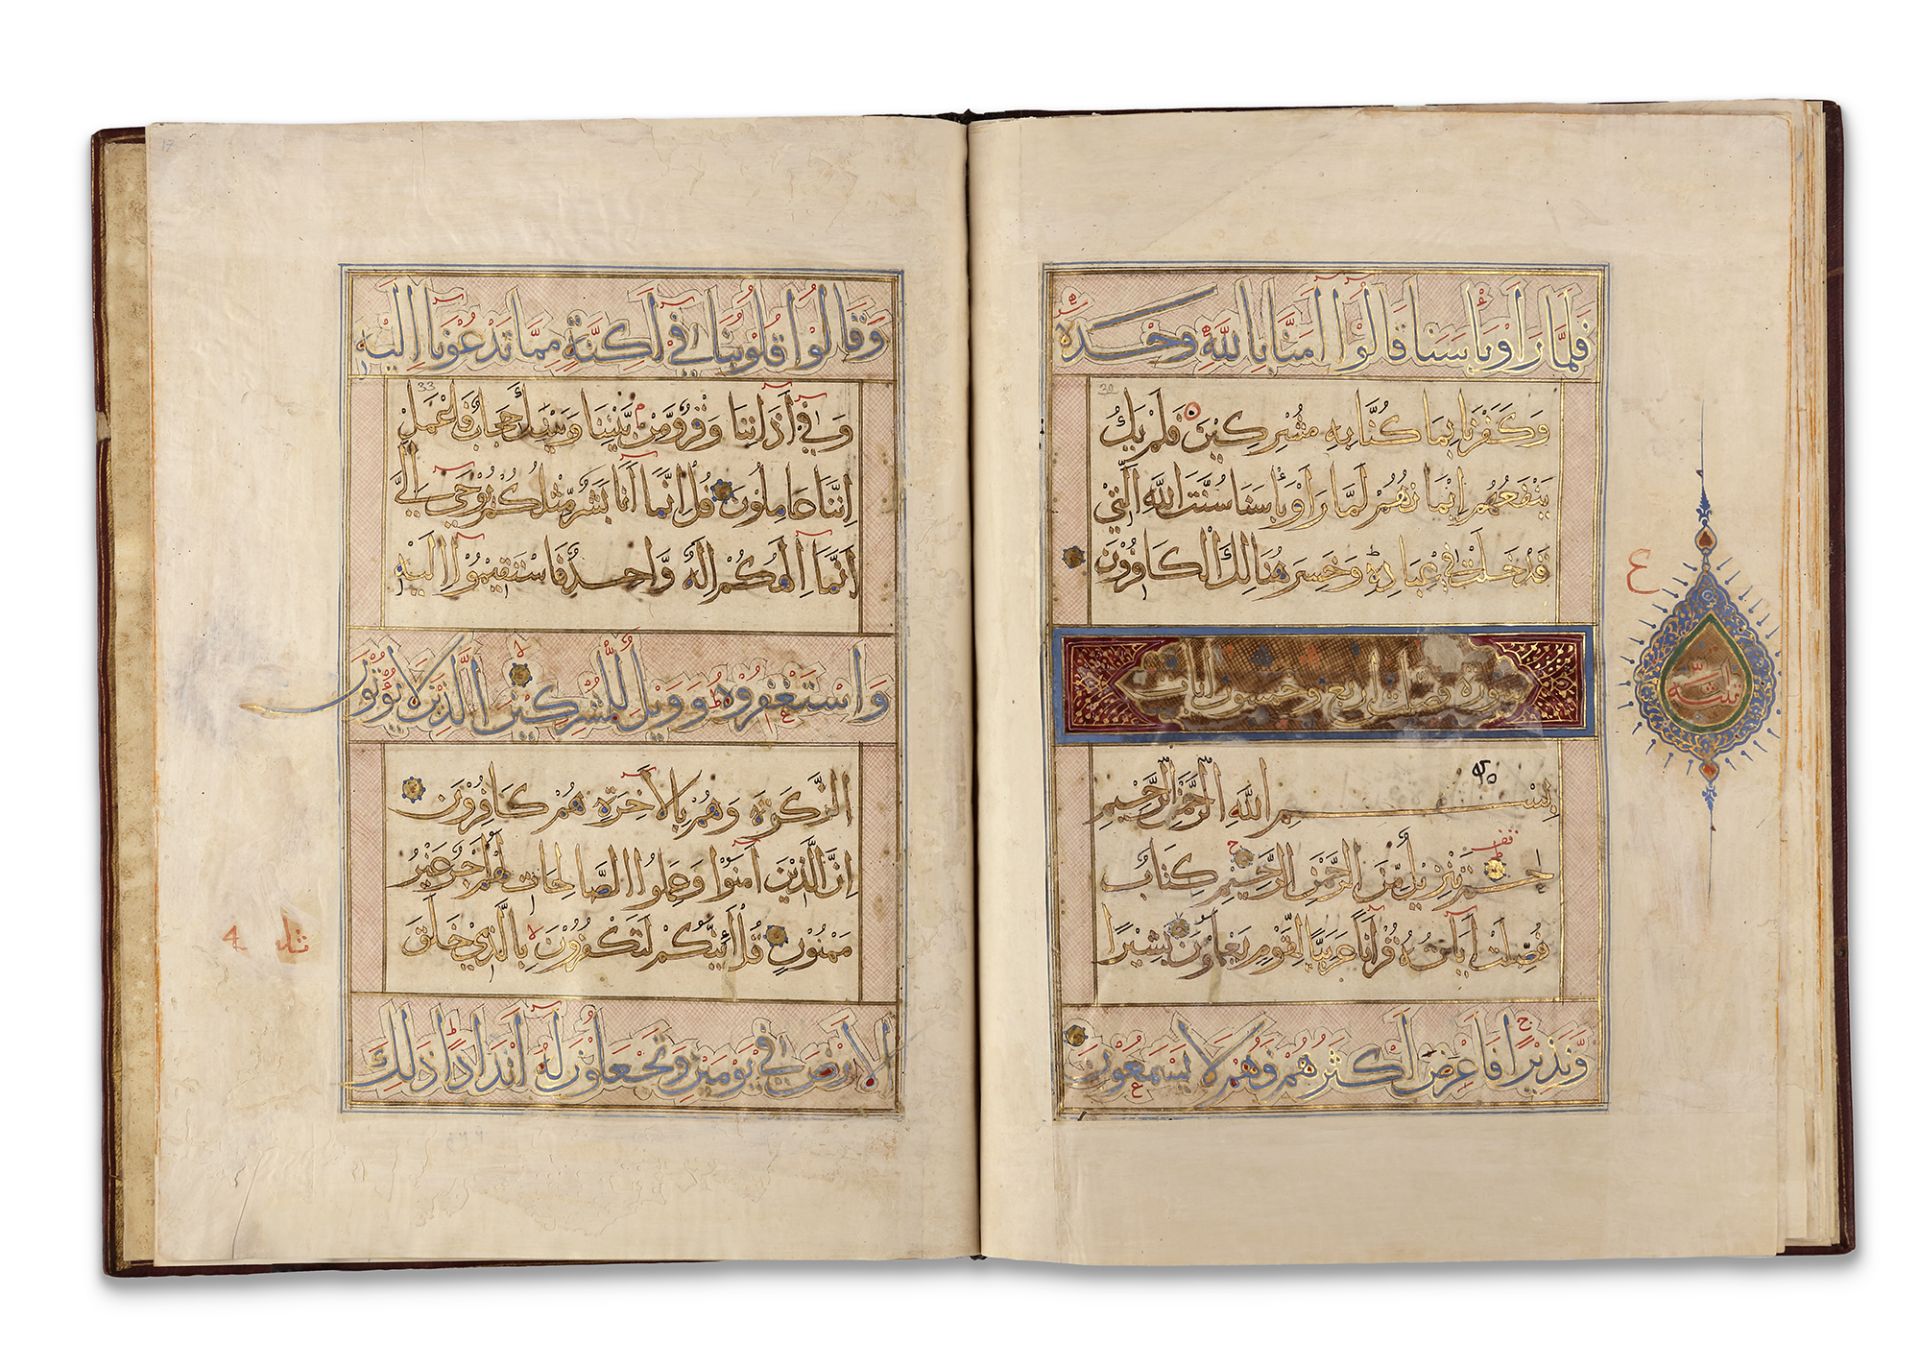 فَلَمَّا رَأَوْا بَأْسَنَا قَالُوا آمَنَّا بِاللَّهِ وَحْدَهُ
وَكَفَرْنَا بِمَا كُنَّا بِهِ مُشْرِكِينَ فَلَمْ يَكُ
يَنْفَعُهُمْ إِيمَانُهُمْ لَمَّا رَأَوْا بَأْسَنَا سُنَّتَ اللَّهِ الَّتِي
قَدْ خَلَتْ فِي عِبَادِهِ وَخَسِرَ هُنَالِكَ الْكَافِرُونَ
سورة فصلت اربع وخمسون ايات
بِسْمِ اللَّهِ الرَّحْمَنِ الرَّحِيمِ
حم تَنْزِيلٌ مِّنَ الرَّحْمَنِ الرَّحِيمِ كِتَابٌ
فُصِّلَتْ آيَاتُهُ قُرْآنًا عَرَبِيًّا لِقَوْمٍ يَعْلَمُونَ بَشِيرًا
وَنَذِيرًا فَأَعْرَضَ أَكْثَرُهُمْ فَهُمْ لَا يَسْمَعُونَ
ع
17
وَقَالُوا قُلُوبُنَا فِي أَكِنَّةٍ مِمَّا تَدْعُونَا إِلَيْهِ
33
وَفِي آذَانِنَا وَقْرٌ وَمِنْ بَيْنِنَا وَبَيْنِكَ حِجَابٌ فَاعْمَلْ
إِنَّنَا عَامِلُونَ قُلْ إِنَّمَا أَنَا بَشَرٌ مِّثْلُكُمْ يُوحَى إِلَيَّ
أَنَّمَا إِلَهُكُمْ إِلَهٌ وَاحِدٌ فَاسْتَقِيمُوا إِلَيْهِ
وَاسْتَغْفِرُوهُ وَوَيْلٌ لِّلْمُشْرِكِينَ الَّذِينَ لَا يُؤْتُونَ
الزَّكَوةَ وَهُمْ بِالْآخِرَةِ هُمْ كَافِرُونَ
إِنَّ الَّذِينَ آمَنُوا وَعَمِلُوا الصَّالِحَاتِ لَهُمْ أَجْرٌ غَيْرُ
مَمْنُونٍ قُلْ أَئِنَّكُمْ لَتَكْفُرُونَ بِالَّذِي خَلَقَ
الْأَرْضَ فِي يَوْمَيْنِ وَتَجْعَلُونَ لَهُ أَنْدَادًا ذَلِكَ